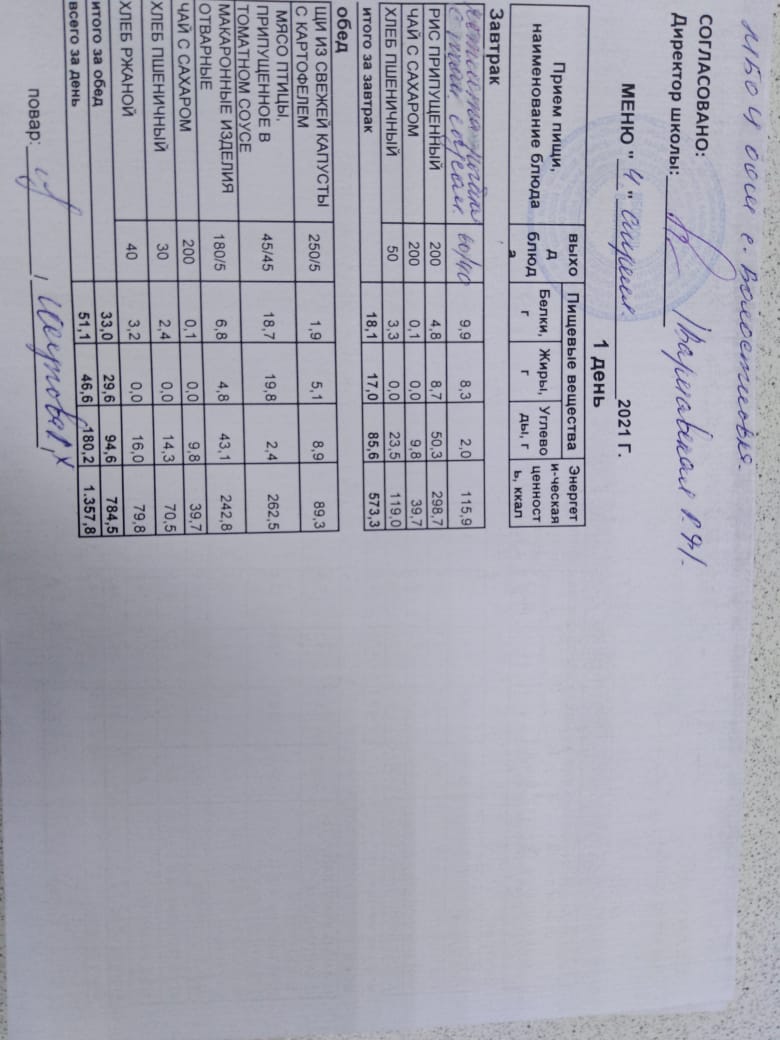 МБОУ ООШ с. Волостновка.
СОГЛАСОВАНО:
Директор школы:
МЕНЮ " 4 " 2021 Г.
1 день
Прием пищи, наименование блюда | выход блюда | Пищевые вещества | Энергетическая ценность, ккал
Белки, г | Жиры, г | Углеводы, г
Завтрак
60/40 | 9,9 | 8,3 | 2,0 | 115,9
РИС ПРИПУЩЕННЫЙ | 200 | 4,8 | 8,7 | 50,3 | 298,7
ЧАЙ С САХАРОМ | 200 | 0,1 | 0,0 | 9,8 | 39,7
ХЛЕБ ПШЕНИЧНЫЙ | 50 | 3,3 | 0,0 | 23,5 | 119,0
итого за завтрак | 18,1 | 17,0 | 85,6 | 573,3
обед
ЩИ ИЗ СВЕЖЕЙ КАПУСТЫ С КАРТОФЕЛЕМ | 250/5 | 1,9 | 5,1 | 8,9 | 89,3
МЯСО ПТИЦЫ, ПРИПУЩЕННОЕ В ТОМАТНОМ СОУСЕ | 45/45 | 18,7 | 19,8 | 2,4 | 262,5
МАКАРОННЫЕ ИЗДЕЛИЯ ОТВАРНЫЕ | 180/5 | 6,8 | 4,8 | 43,1 | 242,8
ЧАЙ С САХАРОМ | 200 | 0,1 | 0,0 | 9,8 | 39,7
ХЛЕБ ПШЕНИЧНЫЙ | 30 | 2,4 | 0,0 | 14,3 | 70,5
ХЛЕБ РЖАНОЙ | 40 | 3,2 | 0,0 | 16,0 | 79,8
итого за обед | 33,0 | 29,6 | 94,6 | 784,5
всего за день | 51,1 | 46,6 | 180,2 | 1.357,8
повар: